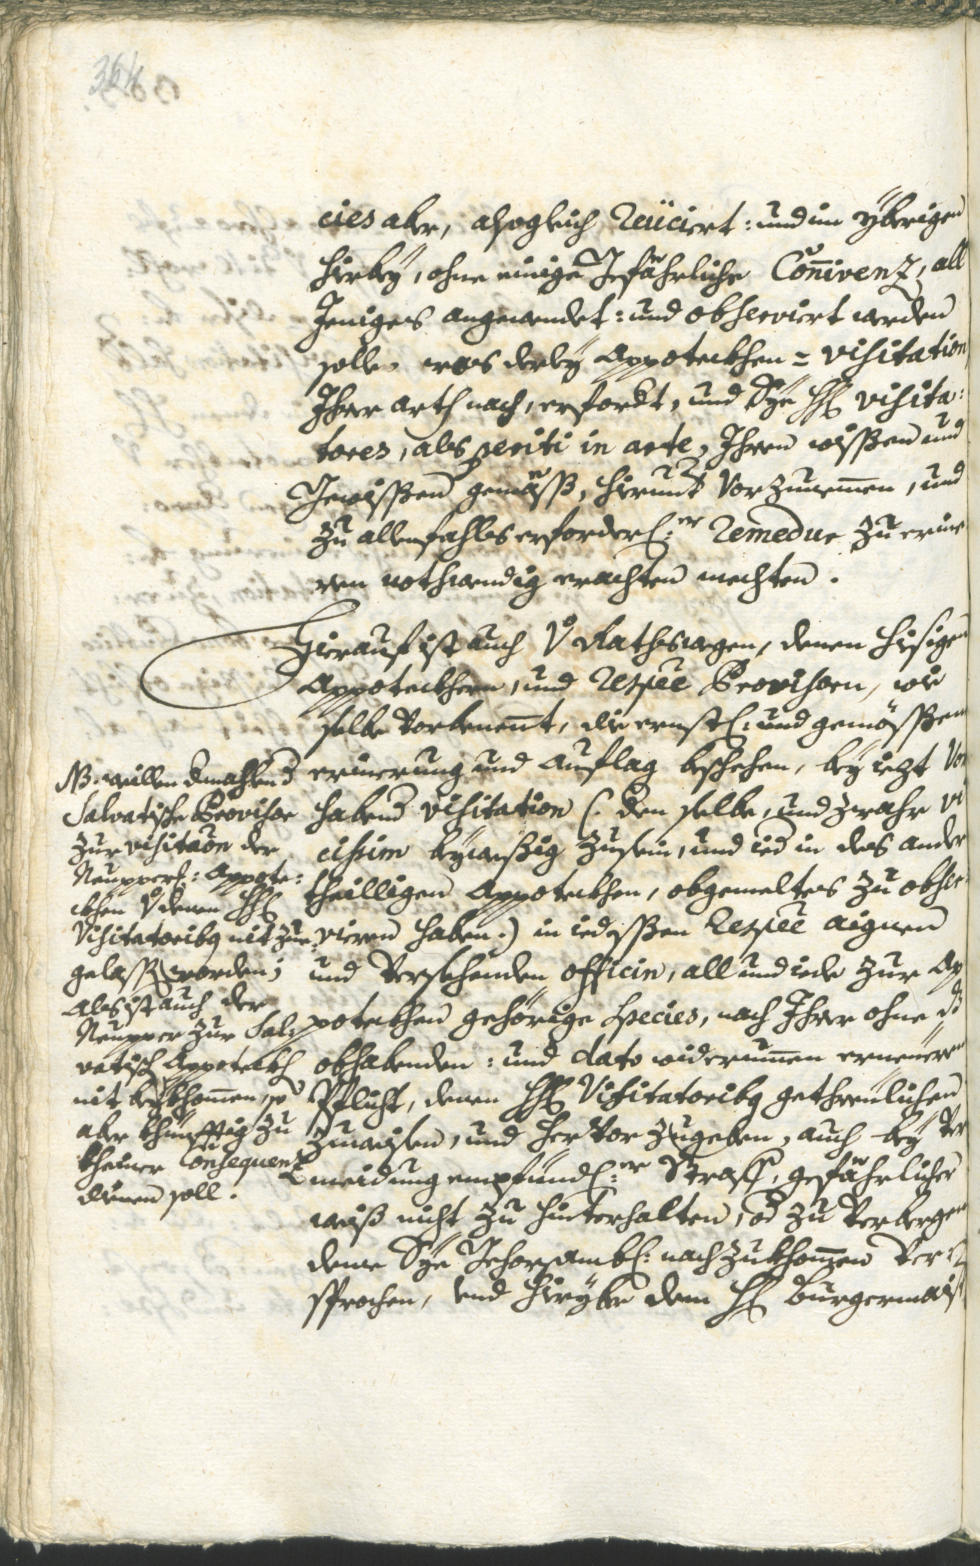 364
cies aber, alsogleich Reiiciert: und im yberigen
hirbey, ohne einige Gefährliche Coñivenz, all
Jeniges angewendet: und observiert werden
solle, was derley Appoteckhen = visitation
Ihrer arth nach, erfordt, und Sye HH visita:
tores, als periti in arte, Ihrem wissen und
Gewissen gemäß, hirunt vorzunemen, und
zu allenfahls erforderl:er Remedur zu erine
ren nothwendig erachten mechten.
Hierauf ist auch v Raths wegen, denen hisigen
Appoteckhern, und Respèe Provisorn, wie
selbe vorbenent, die ernstl: und gemössene
erinerung und Auflag beschehen, bey iezt vor
habend visitation (: dem selbe, und zwahr vi
cissim beywessig zu sein, und ied in des ander
theilligen Appoteckhen, obgemeltes zu obser
vieren haben.) in iedessen Respèe aignen
und versechenden officin, all und iede zur Ap
poteckhen gehörige species, nach Ihrer ohne ds
obhabenden: und dato widerumen erneüerten
Pflicht, denen HH Visitatoribq gethreulichen
zuweisen, und hervor zugeben, auch bey ver
meidung empfindl:er Straff, gefährlicher
weiß nicht zu hinterhalten, od zu verbergen
deme Sye Gehorsambl: nachzukhomen ver
sprochen, und hirüber dem HH Burgermais
NB. weillen dmahlend
Salvatische Provisor
zur visitaõn der
Neupperl: Appote:
ckhen v denen HH
Visitatoribq nit zue
gelass worden;
Als ist auch der
Neupper zur Sal
vatisch Appoteckh
nit beykhomen, so
aber khünfftig zu
kheiner Consequenz
dienen soll.